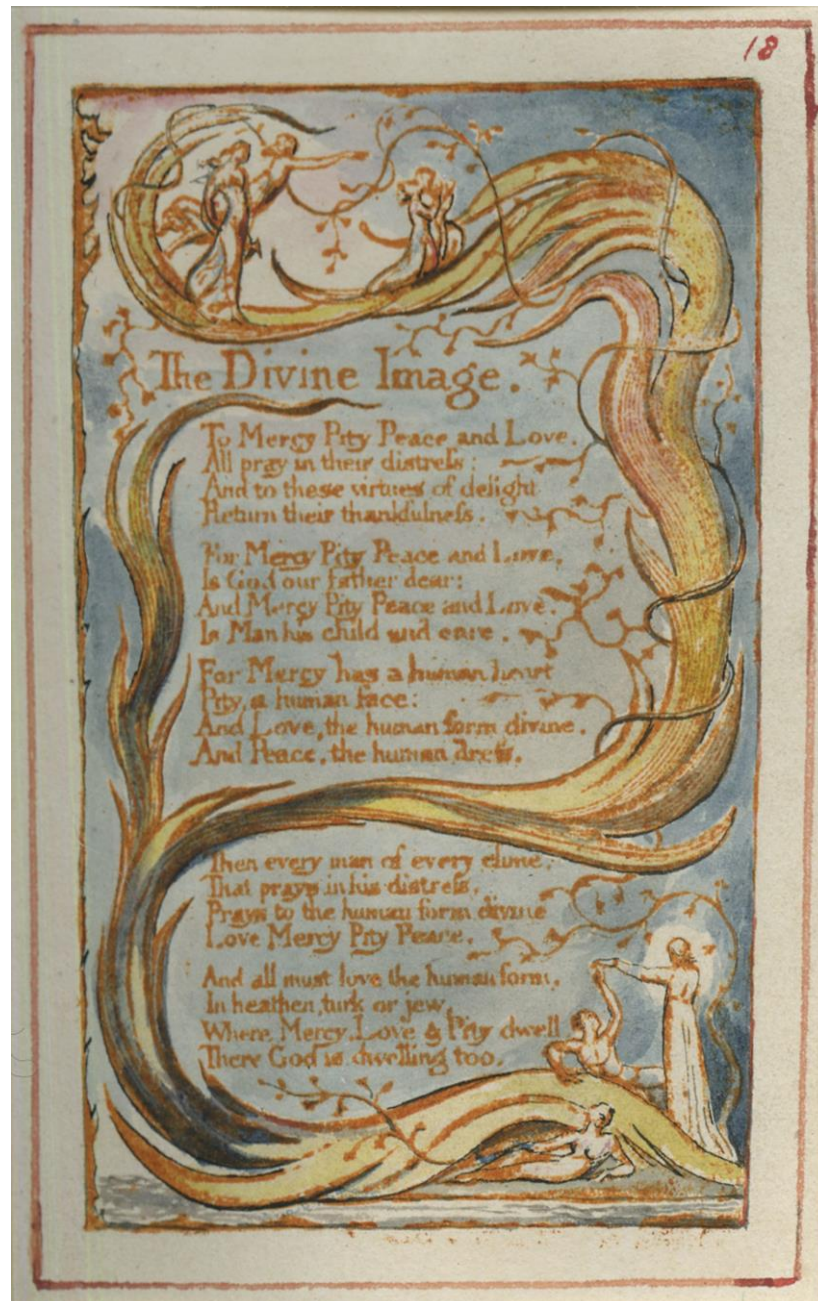 18
The Divine Image.
To Mercy Pity Peace and Love.
All pray in their distreſs:
And to these virtues of delight
Return their thankfulneſs.
For Mercy Pity Peace and Love,
Is God our father dear:
And Mercy Pity Peace and Love.
Is Man his child and care.
For Mercy has a human heart
Pity, a human face:
And Love, the human form divine.
And Peace, the human dreſs.
Then every man of every clime,
That prays in his distreſs,
Prays to the human form divine
Love Mercy Pity Peace.
And all must love the human form,
In heathen, turk or jew.
Where Mercy, Love & Pity dwell
There God is dwelling too.